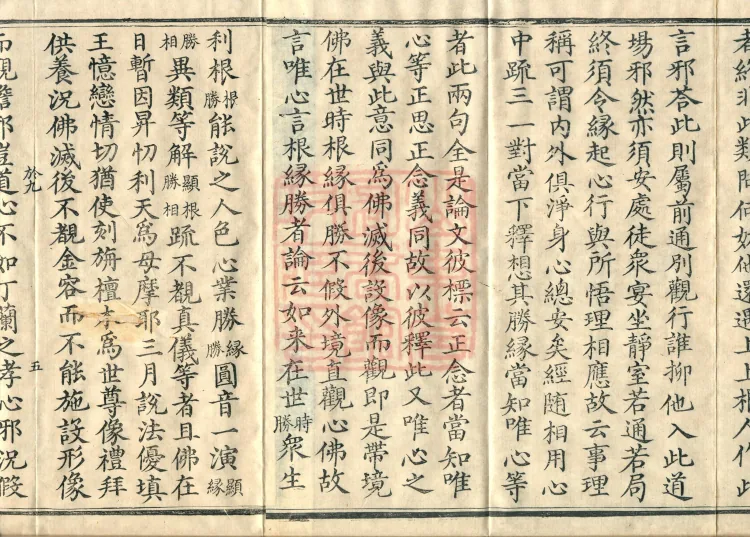 言邪荅此則屬前通別觀行誰抑他入此道
場邪然亦須安處徒衆宴坐靜室若通若局
終須令緣起心行與所悟理相應故云事理
稱可謂内外俱淨身心總安矣經随相用心
中䟽三一對當下釋想其勝緣當知唯心等
者此兩句全是論文彼標云正念者當知唯
心等正思正念義同故以彼釋此又唯心之
義與此意同爲佛滅後設像而觀即是帶境
佛在世時根緣俱勝不假外境直觀心佛故
言唯心言根緣勝者論云如来在世時勝衆生
利根根勝能說之人色心業勝緣勝圓音一演顯緣
勝相異類等解顯根勝相䟽不覩真儀等者且佛在
日暫因昇忉利天爲母摩耶三月說法優填
王憶戀情切猶使刻旃檀木爲世尊像禮拜
供養況佛滅後不覩金容而不能施設形像
而觀瞻邪豈道心不如丁蘭之孝心邪況假
於九
五